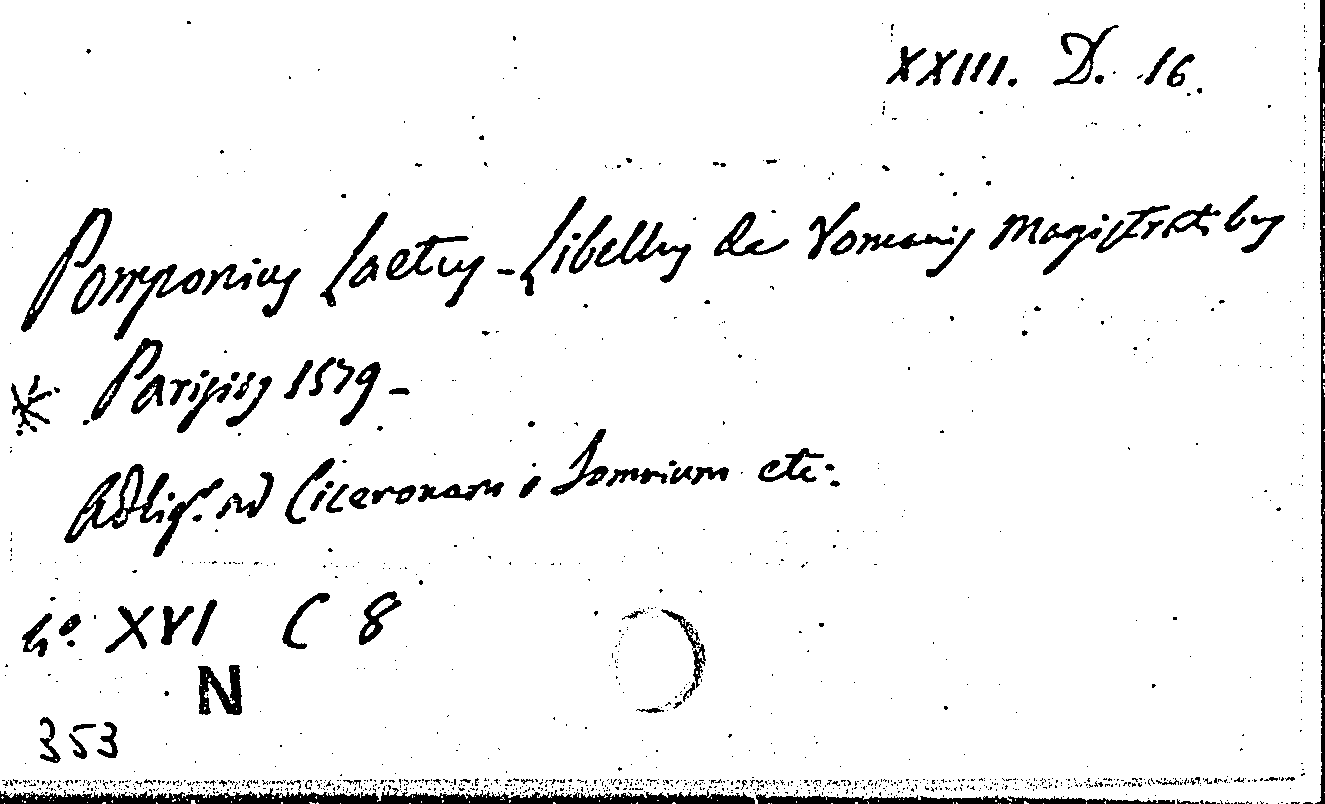 XXIII. D. 16.
Pomponius Laetus - Libellus de romanis magistratibus
* Parisiis 1579 -
Adlig. ad Ciceronem: Somnium etc:
4o. XVI C 8
N
353